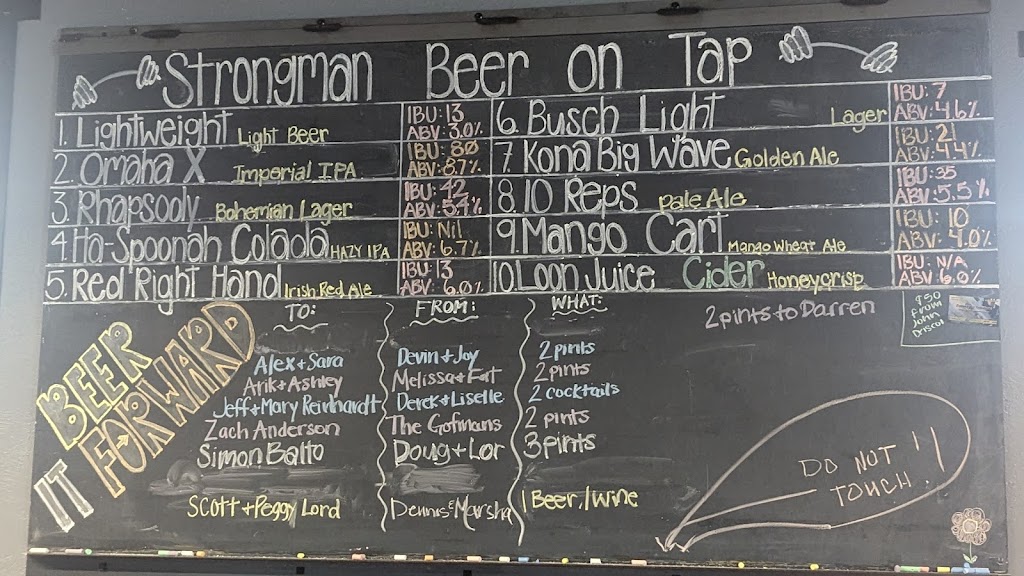 Strongman Beer on Tap
1. Lightweight Light Beer IBU: 13 ABV: 3.0%
2. Omaha X Imperial IPA IBU: 80 ABV: 8.7%
3. Rhapsody Bohemian Lager IBU: 42 ABV: 5.4%
4. Ha-Spoonah Colada HAZY IPA IBU: Nil ABV: 6.7%
5. Red Right Hand Irish Red Ale IBU: 13 ABV: 6.0%
6. Busch Light Lager IBU: 7 ABV: 4.6%
7. Kona Big Wave Golden Ale IBU: 21 ABV: 4.4%
8. 10 Reps Pale Ale IBU: 35 ABV: 5.5%
9. Mango Cart Mango Wheat Ale IBU: 10 ABV: 4.0%
10. Loon Juice Cider Honeycrisp IBU: N/A ABV: 6.0%
BEER
IT FORWARD
TO: FROM: WHAT:
Alex + Sara Devin + Joy 2 pints
Arik + Ashley Melissa + 2 pints
Jeff + Mary Reinhardt Derek + Liselle 2 cocktails
Zach Anderson The Gofmans 2 pints
Simon Balto Doug + Lor 3 pints
Scott + Peggy Lord Dennis & Marsha 1 Beer/Wine
2 pints to Darren
from
John
DO NOT
TOUCH!